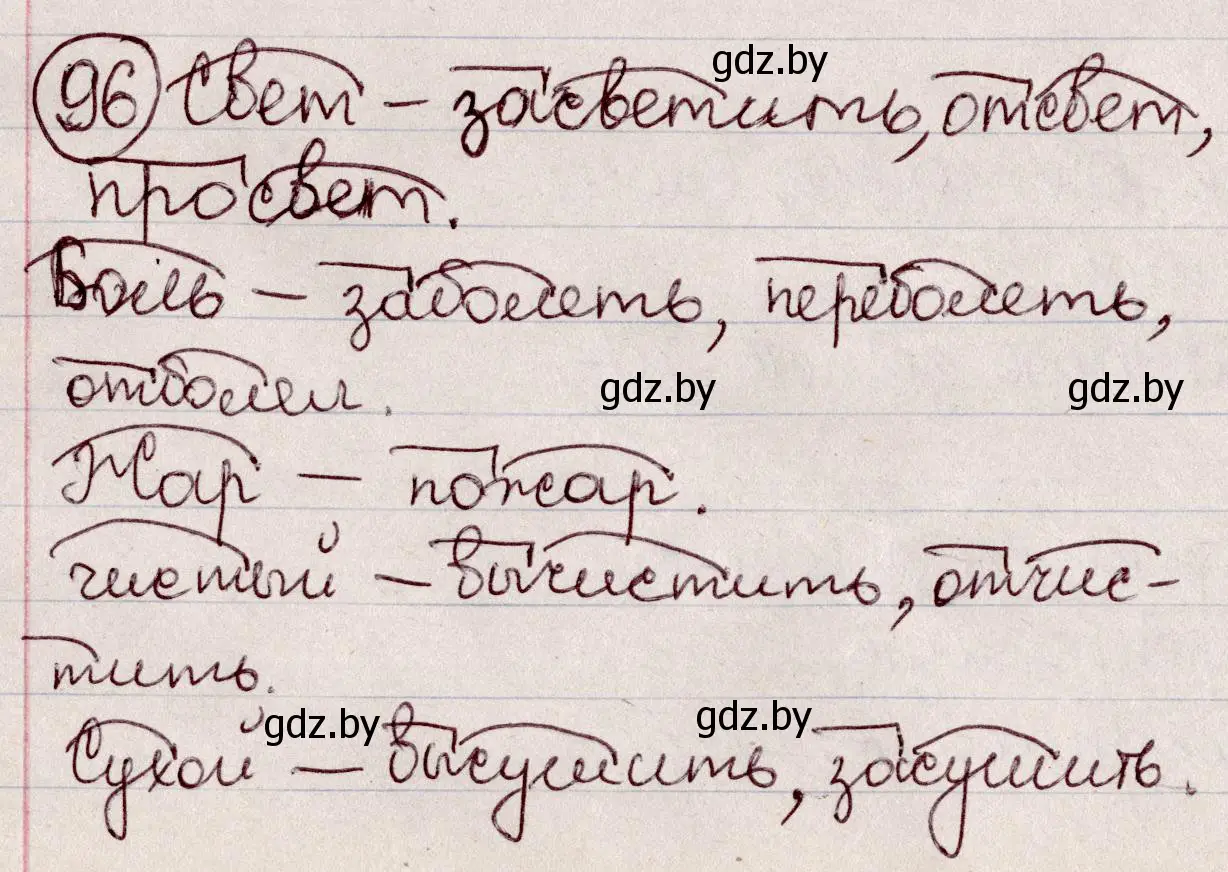 gdz.by
96 Свет – засветить, отсвет,
просвет.
Боль – заболеть, переболеть,
отболел.
gdz.by gdz.by
Жар – пожар.
чистый – вычистить, отчис-
тить.
gdz.by gdz.by
Сухой – высушить, засушить.